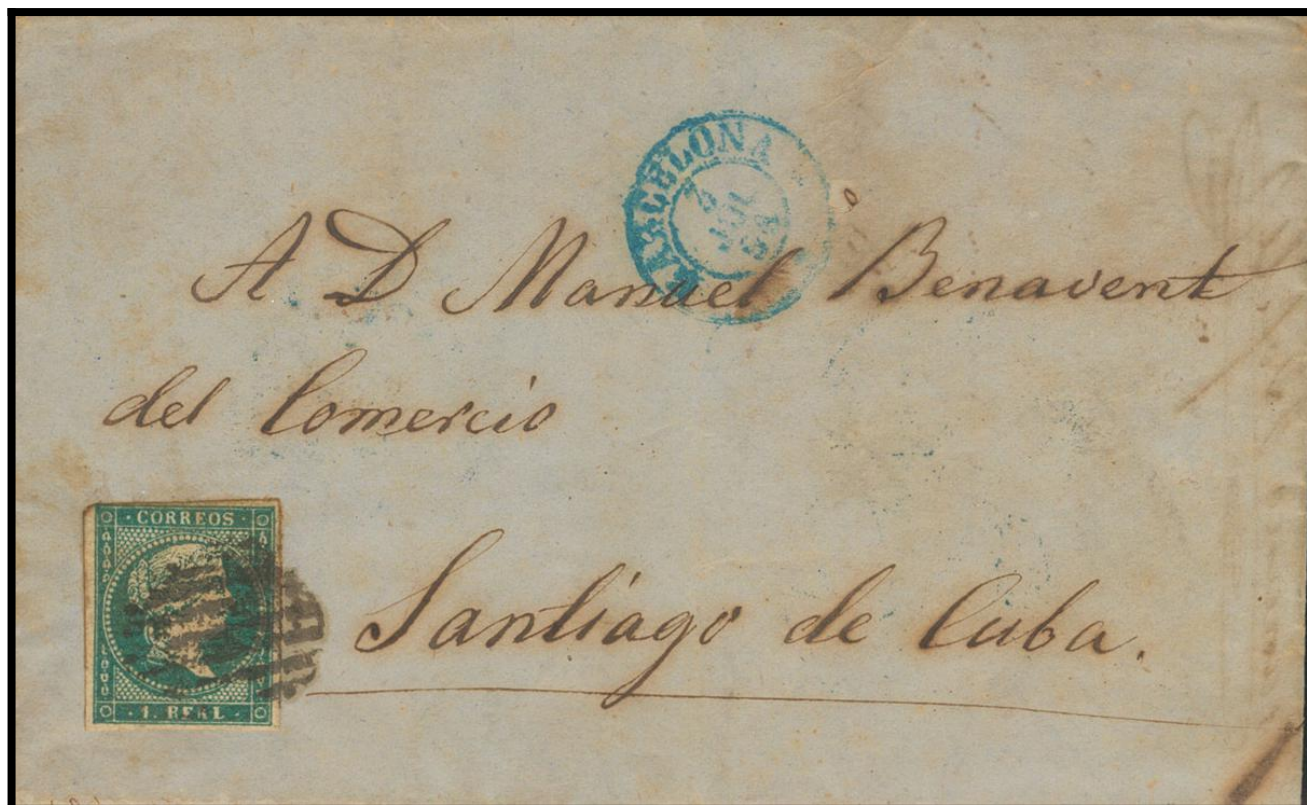 BARCELONA
A D Manuel Benavent
del Comercio
· CORREOS ·
· 1. REAL ·
Santiago de Cuba.